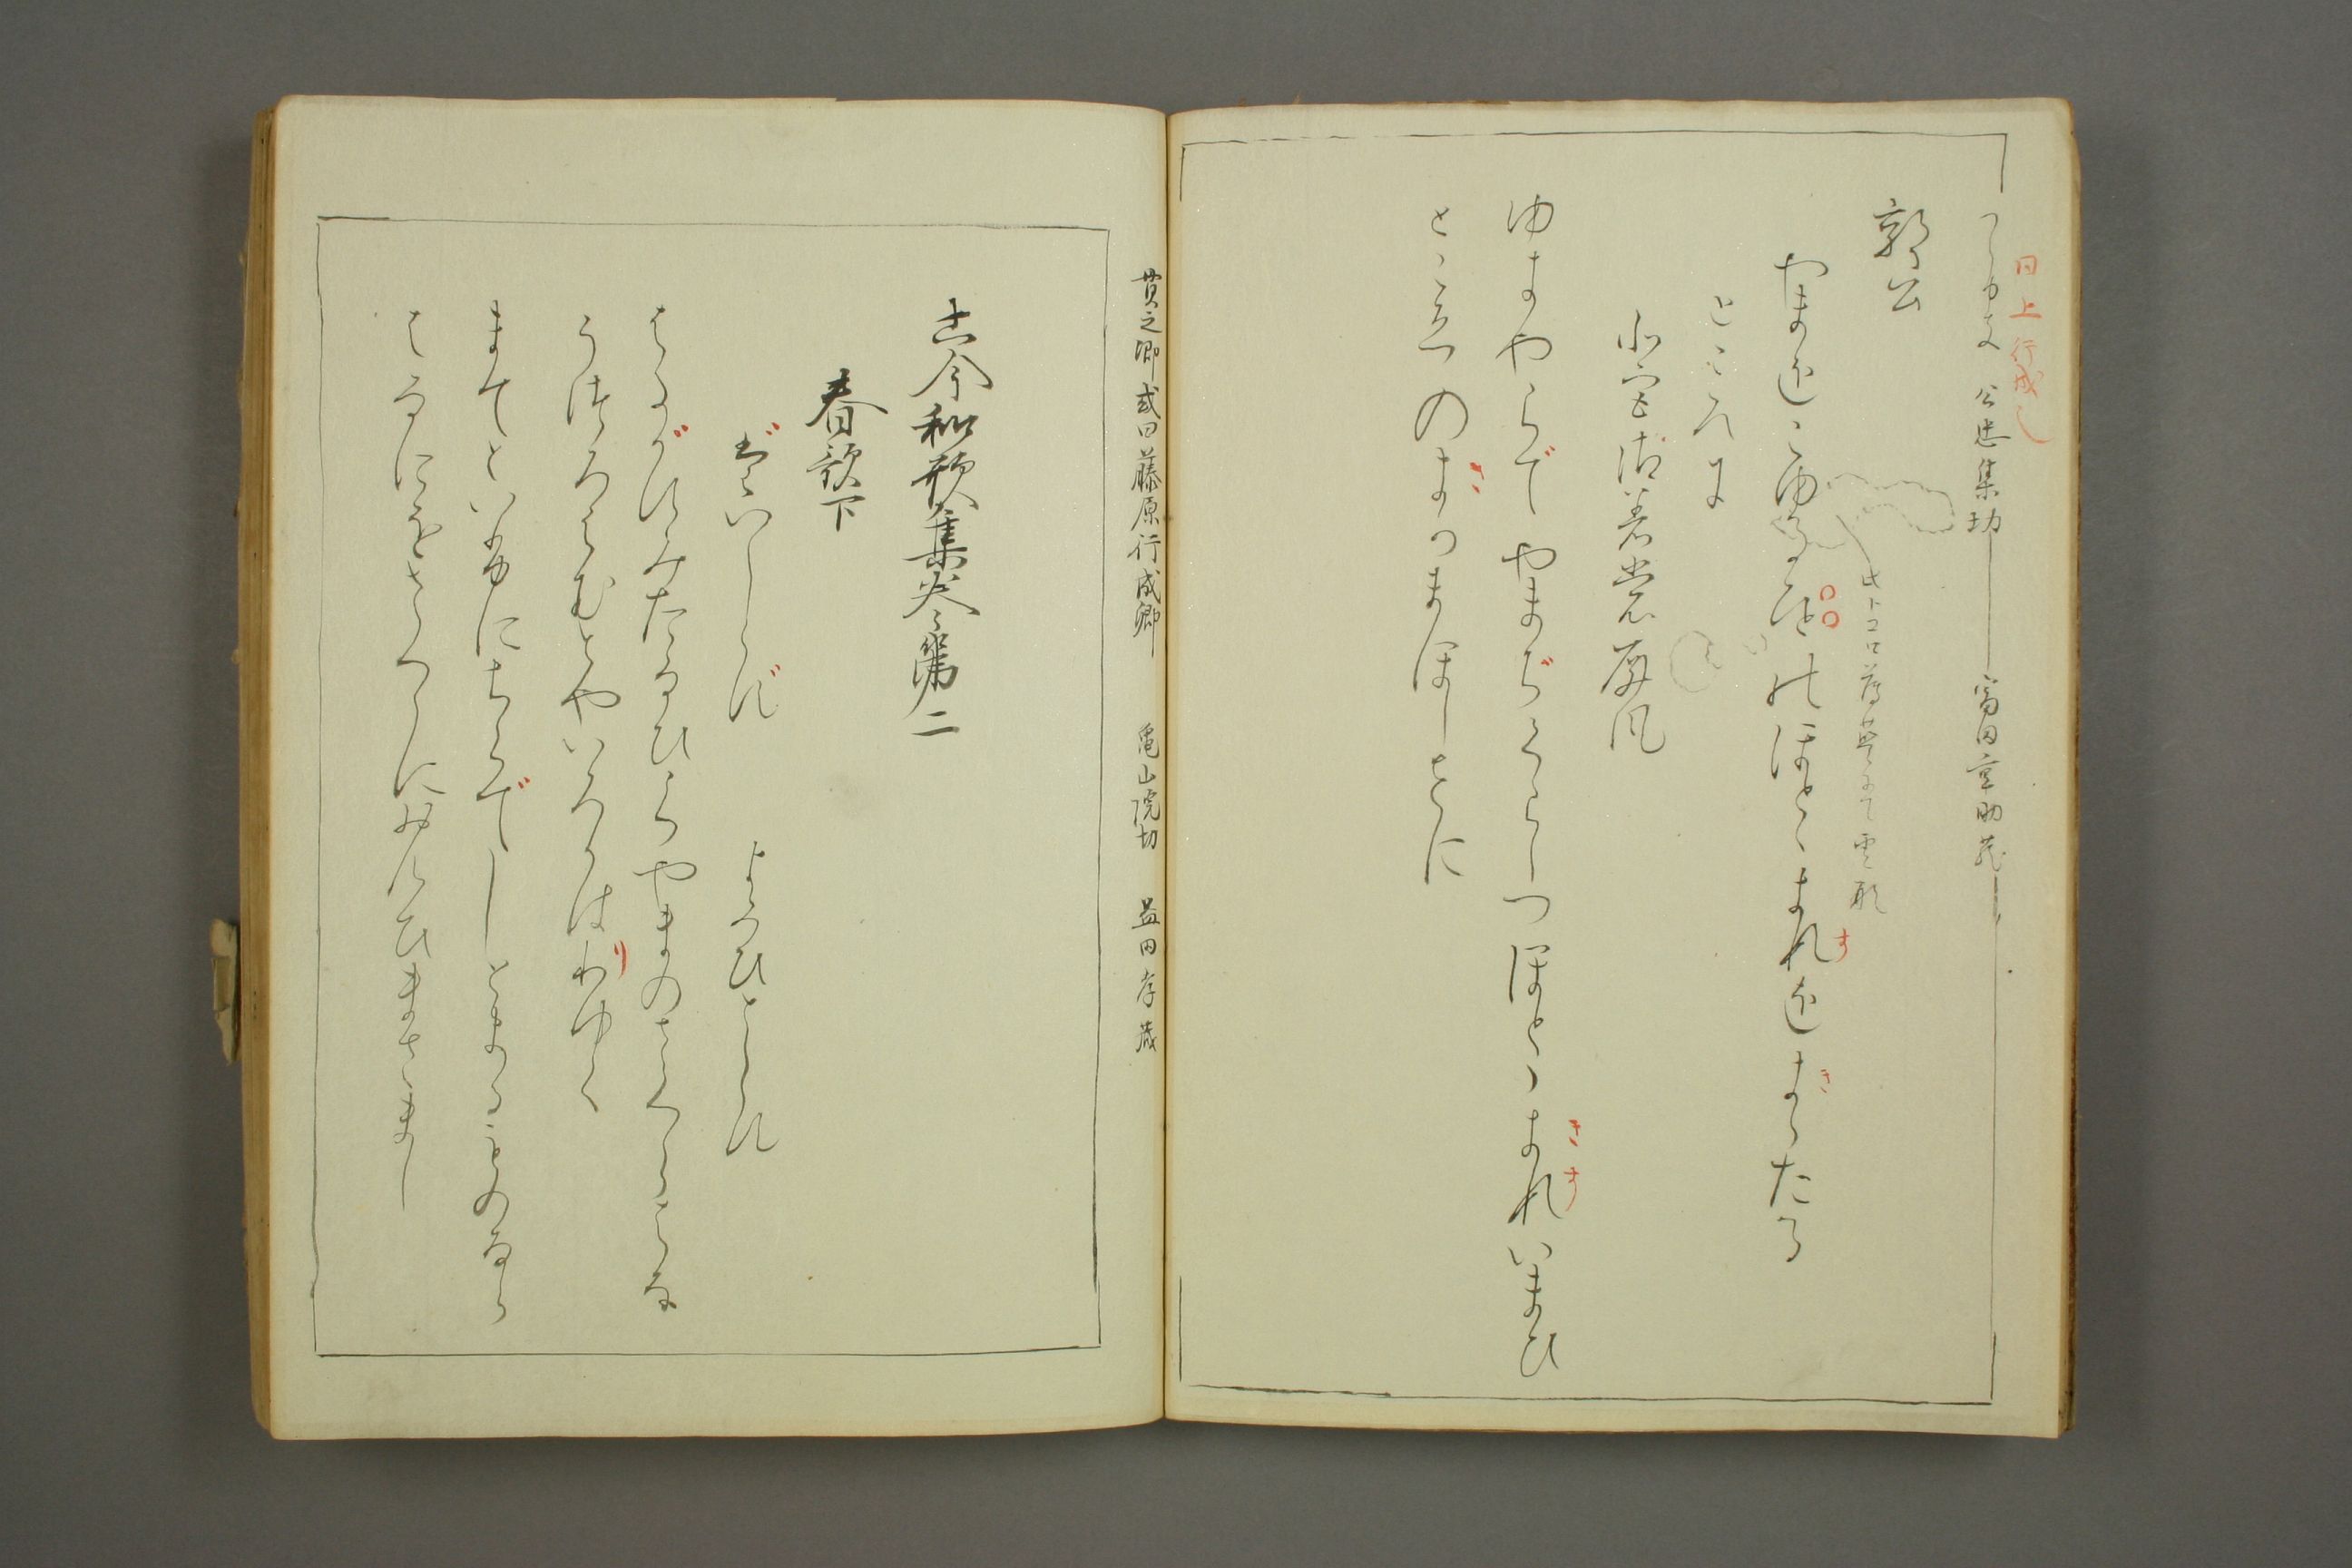 同上行成
公忠集切
富田重助蔵
郭公
やまをこゆるほとゝきすをきゝたる
ところに
北宮御着裳屏風
ゆきやらでやまぢくらしつほとゝきすいまひ
とこゑのきかまほしさに
貫之卿或曰藤原行成卿　亀山院切　益田孝蔵
古今和歌集巻第二
春歌下
だいしらず
よみひとしらず
はるがすみたなびくやまのさくらはな
うつろはむとやいろかはりゆく
まてといふにちらでしとまるものなら
はなにをさくらにおもひまさまし